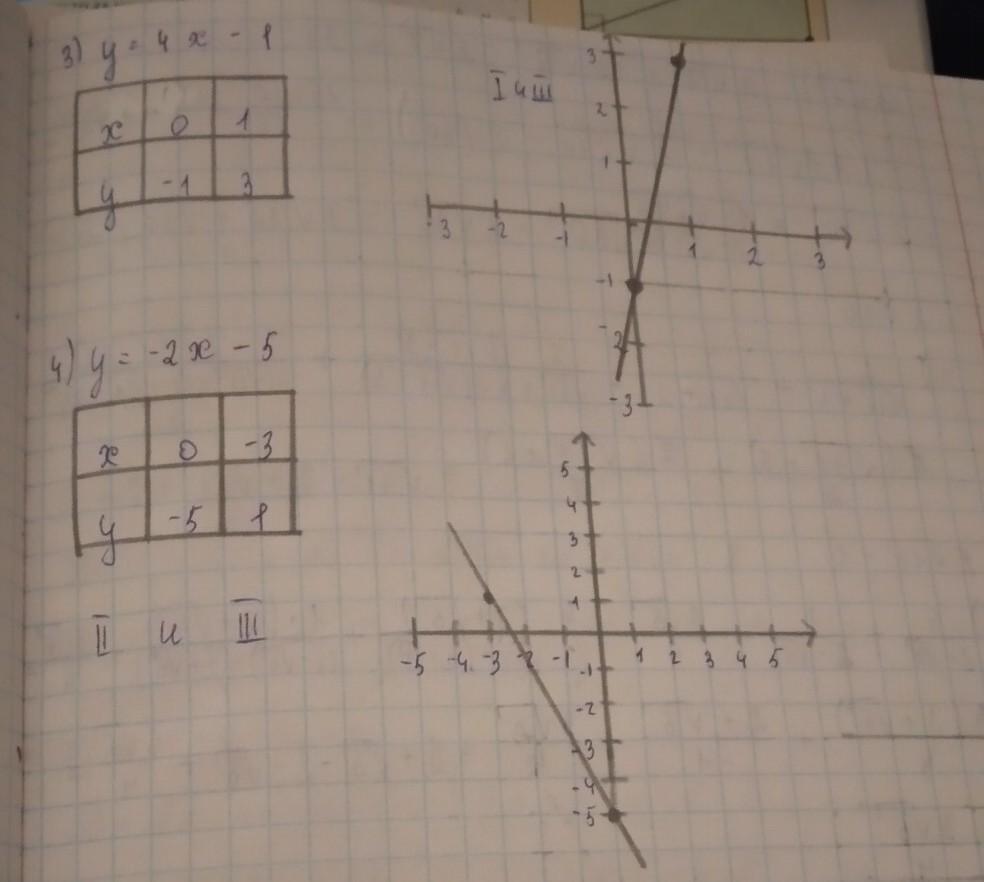 3) y = 4x - 1
x 0 1
y -1 3
I и III
3
2
1
-3 -2 -1 1 2 3
-1
-2
-3
4) y = -2x - 5
x 0 -3
y -5 1
II и III
5
4
3
2
1
-5 -4 -3 -2 -1 1 2 3 4 5
-1
-2
-3
-4
-5